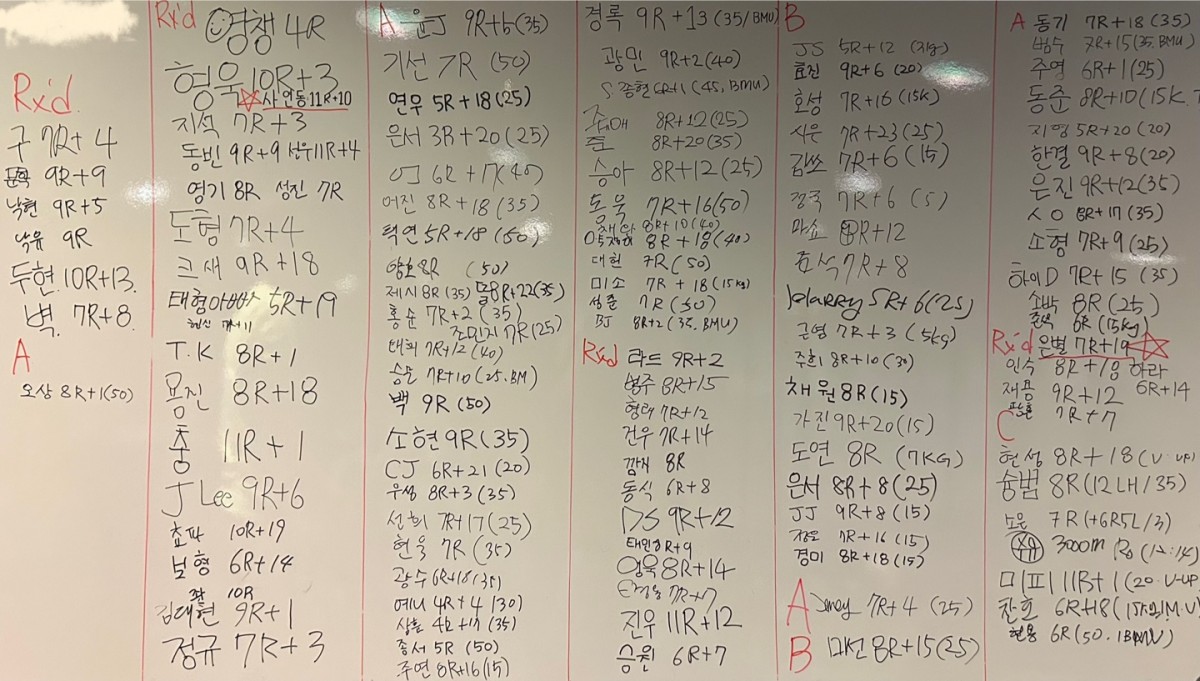 Rx'd
구 7R+4
9R+9
낙현 9R+5
낙유 9R
두현 10R+13
벽. 7R+8
A
오상 8R+1(50)
Rx'd
영쟁 4R
형욱 10R+3
☆사 연동 11R+10
지석 7R+3
동빈 9R+9 선우 11R+4
영기 8R 성진 7R
도형 7R+4
크새 9R+18
태형아빠 5R+19
7R+11
T.K 8R+1
용진 8R+18
충 11R+1
J Lee 9R+6
쵸파 10R+19
보형 6R+14
10R
김대현 9R+1
정규 7R+3
A 윤J 9R+5(35)
기선 7R (50)
연우 5R+18(25)
은서 3R+20(25)
OJ 6R+17(40)
어진 8R+18(35)
택연 5R+18(50)
8R (50)
제시 8R(35) 물8R+22(35)
홍순 7R+2 (35)
조민지 7R(25)
태희 7R+12(40)
승문 7R+10(25.BM)
백 9R (50)
소현 9R(35)
CJ 6R+21(20)
우성 8R+3(35)
선희 7R+17(25)
현욱 7R (35)
광수 6R+18(35)
예니 4R+4 (30)
상훈 4R+17(35)
종서 5R (50)
주연 8R+16(15)
경록 9R+13(35/BMU)
광민 9R+2(40)
종현 6R+1(45, BMU)
8R+12(25)
준 8R+20(35)
승아 8R+12(25)
동욱 7R+16(50)
8R+10(40)
8R+18(40)
대현 7R(50)
미소 7R+18(15kg)
성준 7R(50)
BJ 8R+2(35.BMU)
Rx'd 라드 9R+2
병주 8R+15
형래 7R+12
건우 7R+14
깜지 8R
동식 6R+8
DS 9R+12
태민 9R+9
영욱 8R+14
7R+7
진우 11R+12
승원 6R+7
B
JS 5R+12
효진 9R+6(20)
호성 7R+16(15K)
시은 7R+23(25)
김쏘 7R+6(15)
정국 7R+6(5)
마쇼 8R+12
효석 7R+8
Harry 5R+6(25)
근영 7R+3(5kg)
주희 8R+10(30)
채원 8R(15)
가진 9R+20(15)
도연 8R (7KG)
은서 8R+8(25)
JJ 9R+8(15)
정은 7R+16(15)
경미 8R+18(15)
A Jenny 7R+4(25)
B 미선 8R+15(25)
A 동기 7R+18(35)
범수 7R+15(35.BMU)
주영 6R+1(25)
동준 8R+10(15K.
지영 5R+20(20)
한결 9R+8(20)
은진 9R+12(35)
SO 8R+17(35)
소형 7R+9(25)
하이D 7R+15(35)
소박 8R(25)
6R(15kg)
Rx'd 은별 7R+19☆
인숙 8R+18 하라
재용 9R+12 6R+14
7R+7
C
현성 8R+18(V-UP)
승범 8R(12LH/35)
노은 7R(+6R5L/3)
3000m Ro(12:14)
미피 11R+1(20.V-UP)
찬호 6R+18
현용 6R(50.1BMU)